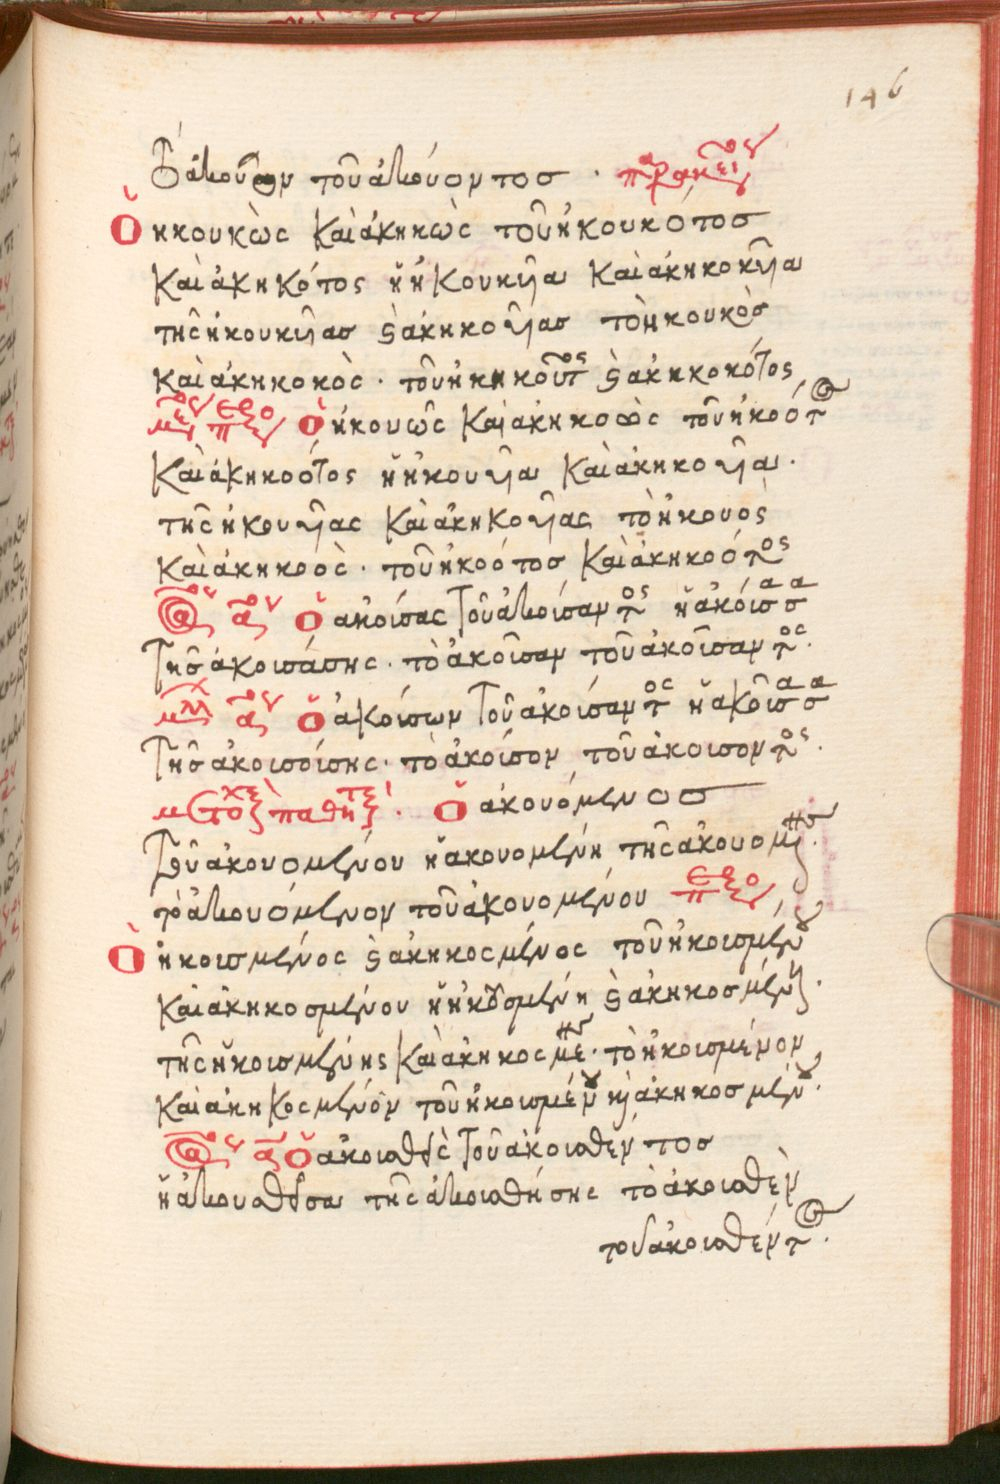 146
τὸ ἀκοῦον τοῦ ἀκούοντος · παρακειμένου
ὁ ἠκουκὼς καὶ ἀκηκὼς τοῦ ἠκουκότος
καὶ ἀκηκότος ἡ ἠκουκῦα καὶ ἀκηκοκῦα
τῆς ἠκουκῦας καὶ ἀκηκοῦας τὸ ἠκουκὸς
καὶ ἀκηκοκὸς · τοῦ καὶ ἀκηκοκότος
ὁ ἠκουὼς καὶ ἀκηκοὼς τοῦ ἠκοότος
καὶ ἀκηκοότος ἡ ἠκουῦα καὶ ἀκηκοῦα ·
τῆς ἠκουῦας καὶ ἀκηκοῦας τὸ ἠκουὸς
καὶ ἀκηκοὸς · τοῦ ἠκοότος καὶ ἀκηκοότος
ὁ ἀκοίσας τοῦ ἀκοίσαντος ἡ ἀκοίσασα
τῆς ἀκοισάσης · τὸ ἀκοῖσαν τοῦ ἀκοῖσαντος ·
ὁ ἀκοίσων τοῦ ἀκοίσαντος ἡ ἀκοῖσασα
τῆς ἀκοισοίσης · τὸ ἀκοίσον τοῦ ἀκοισοντος ·
μετοχὲ παθητικὲ · ὁ ἀκουόμενος
τοῦ ἀκουομένου ἡ ἀκουομένη τῆς ἀκουομένης ·
τὸ ἀκουόμενον τοῦ ἀκουομένου
ὁ ἠκοισμένος καὶ ἀκηκοσμένος τοῦ ἠκοισμένου
καὶ ἀκηκοσμένου ἡ ἠκουσμένη καὶ ἀκηκοσμένη ·
τῆς ἠκοισμένης καὶ ἀκηκοσμένης · τὸ ἠκοισμένον
καὶ ἀκηκοσμένον τοῦ ἠκοισμένου καὶ ἀκηκοσμένου ·
ὁ ἀκοισθεὶς τοῦ ἀκοισθέντος
ἡ ἀκουσθεῖσα τῆς ἀκοισθήσης τὸ ἀκοισθὲν
τοῦ ἀκοισθέντος ·